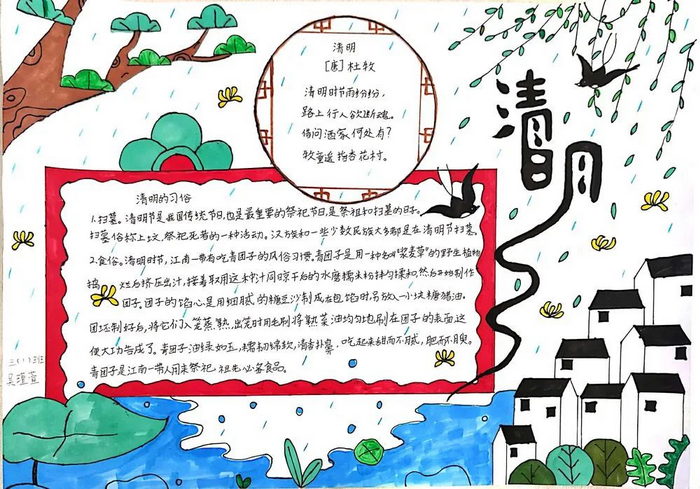 清明
[唐]杜牧
清明时节雨纷纷,
路上行人欲断魂。
借问酒家何处有?
牧童遥指杏花村。
清明
清明的习俗
1.扫墓。清明节是我国传统节日,也是最重要的祭祀节日,是祭祖和扫墓的日子。
扫墓俗称上坟,祭祀死者的一种活动。汉族和一些少数民族大多都是在清明节扫墓。
2.食俗。清明时节,江南一带有吃青团子的风俗习惯。青团子是用一种名叫"浆麦草"的野生植物
捣烂后挤压出汁,接着取用这种汁同晾干后的水磨糯米粉拌匀揉和,然后开始制作
团子。团子的馅心是用细腻的糖豆沙制成,在包馅时,另放入一小块糖猪油。
团坯制好后,将它们入笼蒸熟,出笼时用毛刷将熟菜油均匀地刷在团子的表面,这
便大功告成了。青团子油绿如玉,糯韧绵软,清香扑鼻,吃起来甜而不腻,肥而不腴。
青团子是江南一带人用来祭祀祖先必备食品。